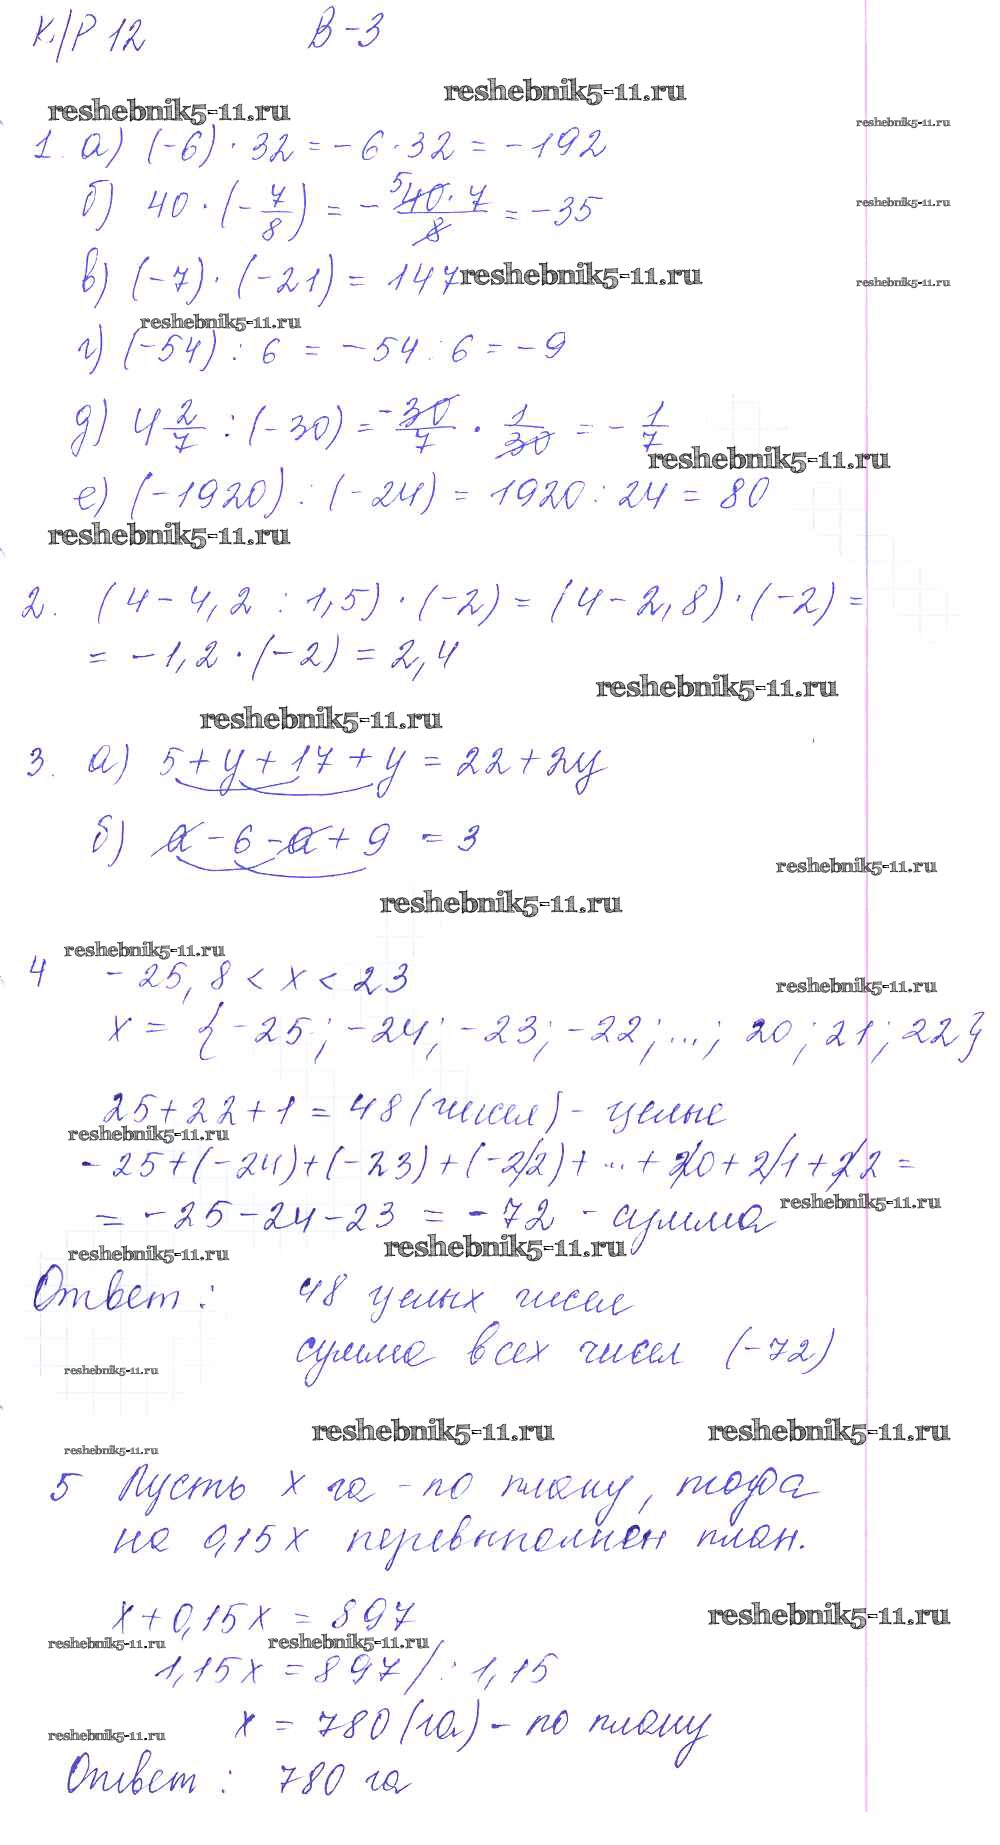 К/Р 12 В-3
reshebnik5-11.ru
reshebnik5-11.ru
reshebnik5-11.ru
1. а) (-6) · 32 = -6 · 32 = -192
б) 40 · (-7/8) = - 5 40 · 7 / 8 = -35
reshebnik5-11.ru
в) (-7) · (-21) = 147
reshebnik5-11.ru
reshebnik5-11.ru
reshebnik5-11.ru
г) (-54) : 6 = -54 : 6 = -9
д) 4 2/7 : (-30) = -30/7 · 1/30 = - 1/7
reshebnik5-11.ru
е) (-1920) : (-24) = 1920 : 24 = 80
reshebnik5-11.ru
2. (4 - 4,2 : 1,5) · (-2) = (4 - 2,8) · (-2) =
= -1,2 · (-2) = 2,4
reshebnik5-11.ru
reshebnik5-11.ru
3. а) 5 + y + 17 + y = 22 + 2y
б) a - 6 - a + 9 = 3
reshebnik5-11.ru
reshebnik5-11.ru
reshebnik5-11.ru
4 -25,8 < x < 23
reshebnik5-11.ru
x = {-25; -24; -23; -22; ...; 20; 21; 22}
25 + 22 + 1 = 48 (чисел) - целые
reshebnik5-11.ru
-25 + (-24) + (-23) + (-22) + ... + 20 + 21 + 22 =
reshebnik5-11.ru
= -25 - 24 - 23 = -72 - сумма
reshebnik5-11.ru
reshebnik5-11.ru
Ответ: 48 целых чисел
сумма всех чисел (-72)
reshebnik5-11.ru
reshebnik5-11.ru
reshebnik5-11.ru
reshebnik5-11.ru
5 Пусть x га - по плану, тогда
на 0,15x перевыполнен план.
x + 0,15x = 897
reshebnik5-11.ru
reshebnik5-11.ru
reshebnik5-11.ru
1,15x = 897 /: 1,15
x = 780 (га) - по плану
reshebnik5-11.ru
Ответ: 780 га